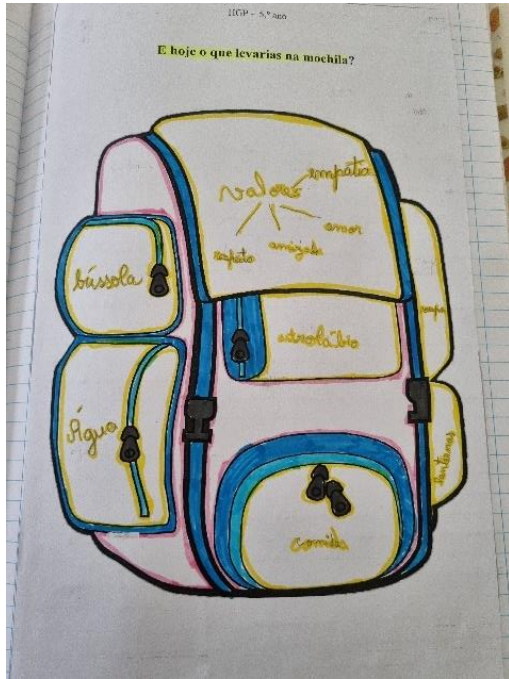 HGP - 5.º ano
E hoje o que levarias na mochila?
empatia
valores
amor
amizade
respeito
bússola
astrolábio
mapa
Água
lanternas
comida